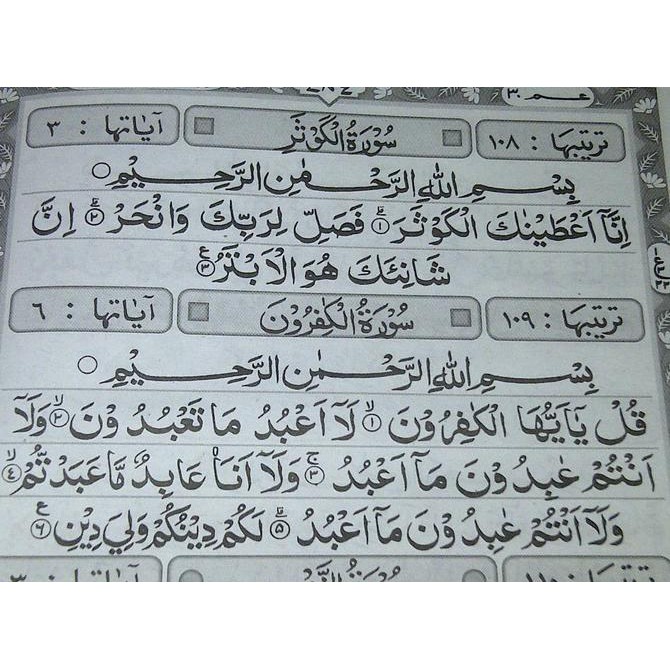 عم ٣٠
ترتيبها : ١٠٨ سُوْرَةُ الْكَوْثَرِ آيَاتها : ٣
بِسْمِ اللهِ الرَّحْمٰنِ الرَّحِيْمِ
اِنَّآ اَعْطَيْنٰكَ الْكَوْثَرَ ١ فَصَلِّ لِرَبِّكَ وَانْحَرْ ٢ اِنَّ
شَانِئَكَ هُوَ الْاَبْتَرُ ٣
ترتيبها : ١٠٩ سُوْرَةُ الْكٰفِرُوْنَ آيَاتها : ٦
بِسْمِ اللهِ الرَّحْمٰنِ الرَّحِيْمِ
قُلْ يٰٓاَيُّهَا الْكٰفِرُوْنَ ١ لَآ اَعْبُدُ مَا تَعْبُدُوْنَ ٢ وَلَآ
اَنْتُمْ عٰبِدُوْنَ مَآ اَعْبُدُ ٣ وَلَآ اَنَا۠ عَابِدٌ مَّا عَبَدْتُّمْ ٤
وَلَآ اَنْتُمْ عٰبِدُوْنَ مَآ اَعْبُدُ ٥ لَكُمْ دِيْنُكُمْ وَلِيَ دِيْنِ ٦